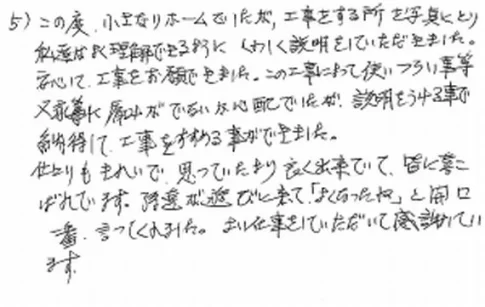 5) この度、小さなリホームでしたが、工事をする所を写真にとり
私達によく理解できるように くわしく説明をしていただきました。
安心して、工事をお願いできました。この工事によって使いづらい事等
又永等に 雨もりがでないか心配でしたが、説明をうける事で
納得して、工事をすすめる事ができました。
仕上りもきれいで、思っていたより良く出来ていて、皆に喜こ
ばれています。 が遊びに来て「よくなったね」と開口
一番、言ってくれました。よい仕事をしていただいて感謝してい
ます。